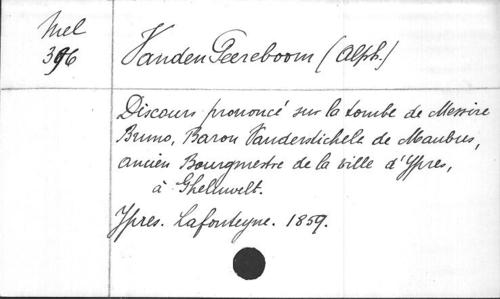 Mel
396
Vanden Peereboom (Alph.)
Discours prononcé sur la tombe de Messire
Bruno, Baron Vanderstichele de Maubus,
ancien Bourgmestre de la ville d'Ypres,
à Gheluwelt.
Ypres. Lafonteyne. 1859.